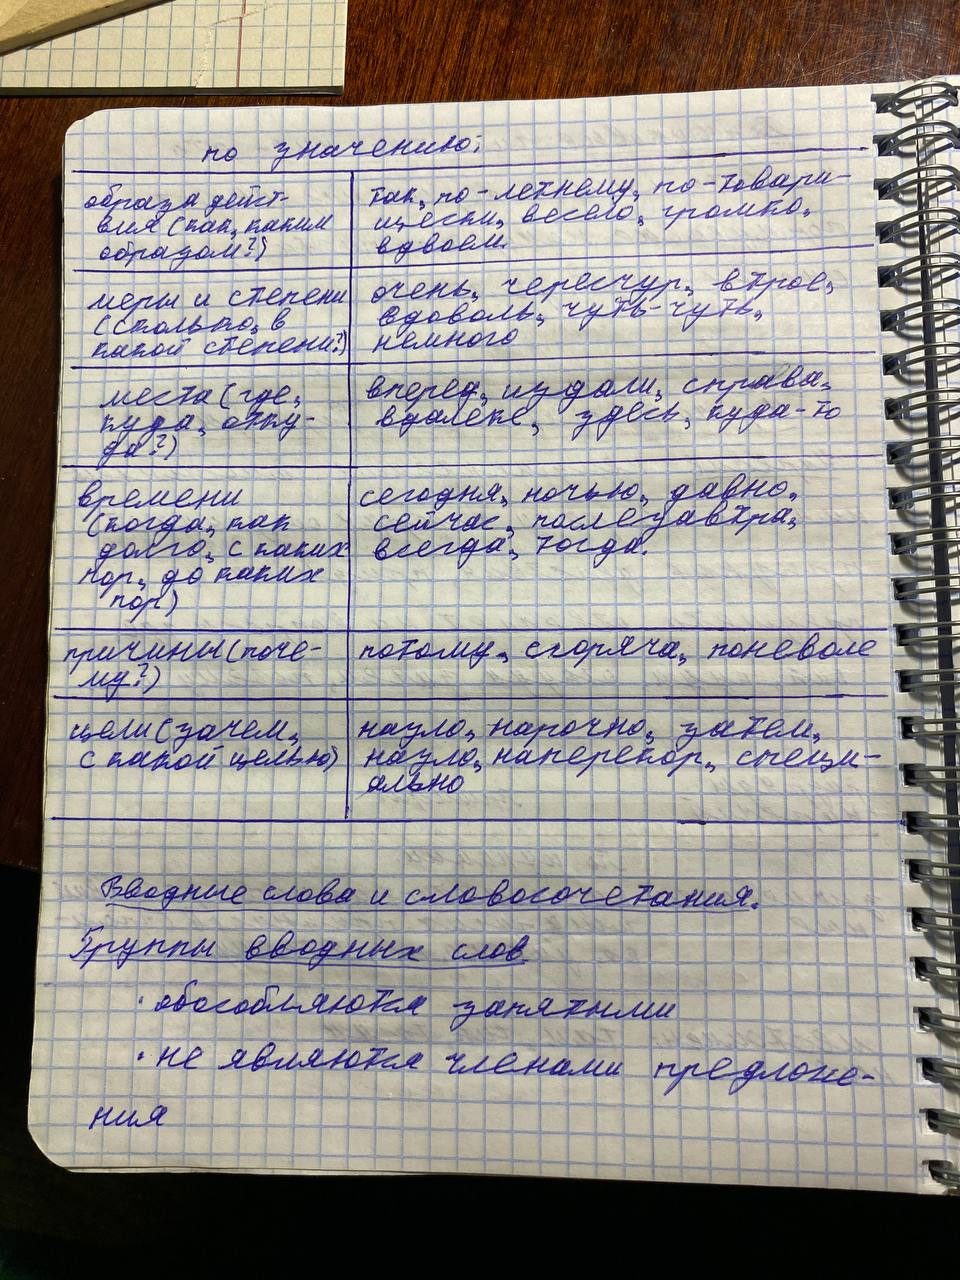 по значению:
образа дейст-
вия (как, каким
образом?)
так, по-летнему, по-товари-
щески, весело, громко,
вдвоем.
меры и степени
(сколько, в
какой степени?)
очень, чересчур, втрое,
вдоволь, чуть-чуть,
немного
места (где,
куда, отку-
да?)
вперед, издали, справа,
вдалеке, здесь, куда-то
времени
(когда, как
долго, с каких
пор, до каких
пор)
сегодня, ночью, давно,
сейчас, послезавтра,
всегда, тогда.
причины (поче-
му?)
потому, сгоряча, поневоле
цели (зачем,
с какой целью)
назло, нарочно, затем,
назло, наперекор, специ-
ально
Вводные слова и словосочетания.
Группы вводных слов
· обособляются запятыми
· не являются членами предложе-
ния